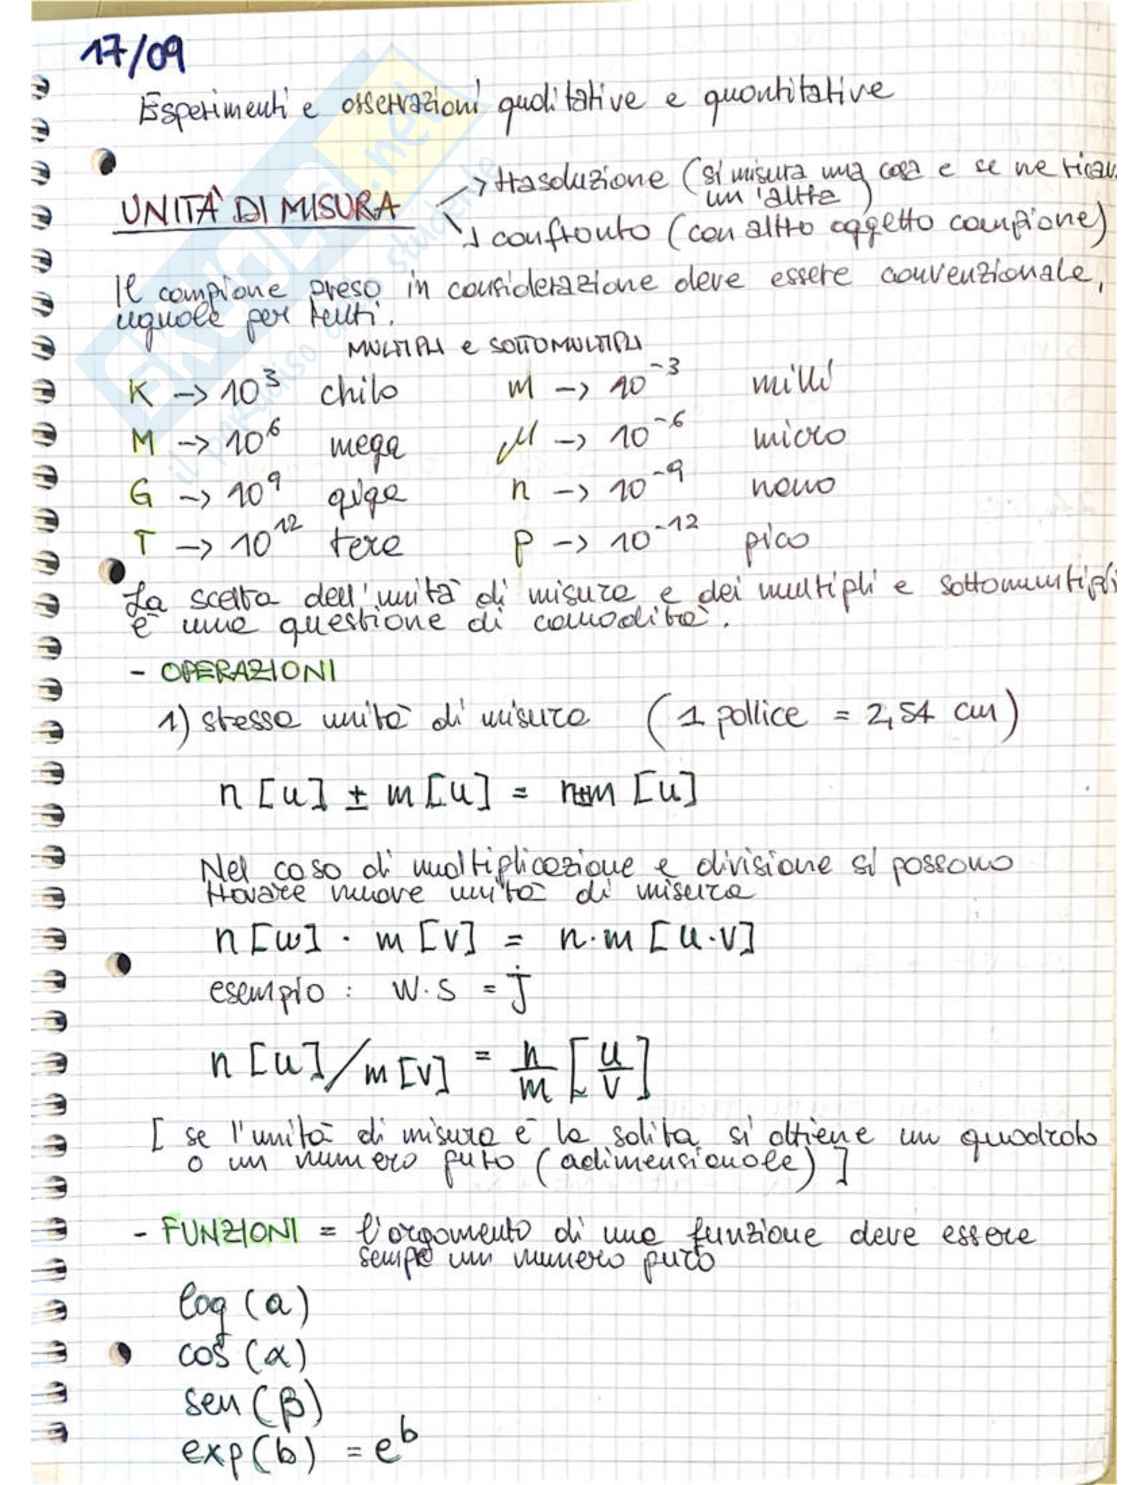 17/09
Esperimenti e osservazioni qualitative e quantitative
UNITÀ DI MISURA
→ trasoluzione (si misura una cosa e se ne ricav
un'altra)
↓ confronto (con altro oggetto campione)
Il campione preso in considerazione deve essere convenzionale,
uguale per tutti.
MULTIPLI e SOTTOMULTIPLI
K -> 10³ chilo m -> 10⁻³ milli
M -> 10⁶ mega μ -> 10⁻⁶ micro
G -> 10⁹ giga n -> 10⁻⁹ nano
T -> 10¹² tera p -> 10⁻¹² pico
La scelta dell'unità di misura e dei multipli e sottomultipli
è una questione di comodità.
- OPERAZIONI
1) stessa unità di misura (1 pollice = 2,54 cm)
n [u] ± m [u] = n±m [u]
Nel caso di moltiplicazione e divisione si possono
trovare nuove unità di misura
n [u] · m [v] = n·m [u·v]
esempio : W·s = j
n [u] / m [v] = n/m [u/v]
[ se l'unità di misura è la solita si ottiene un quadrato
o un numero puro (adimensionale) ]
- FUNZIONI = l'argomento di una funzione deve essere
sempre un numero puro
log (a)
cos (α)
sen (β)
exp (b) = eᵇ